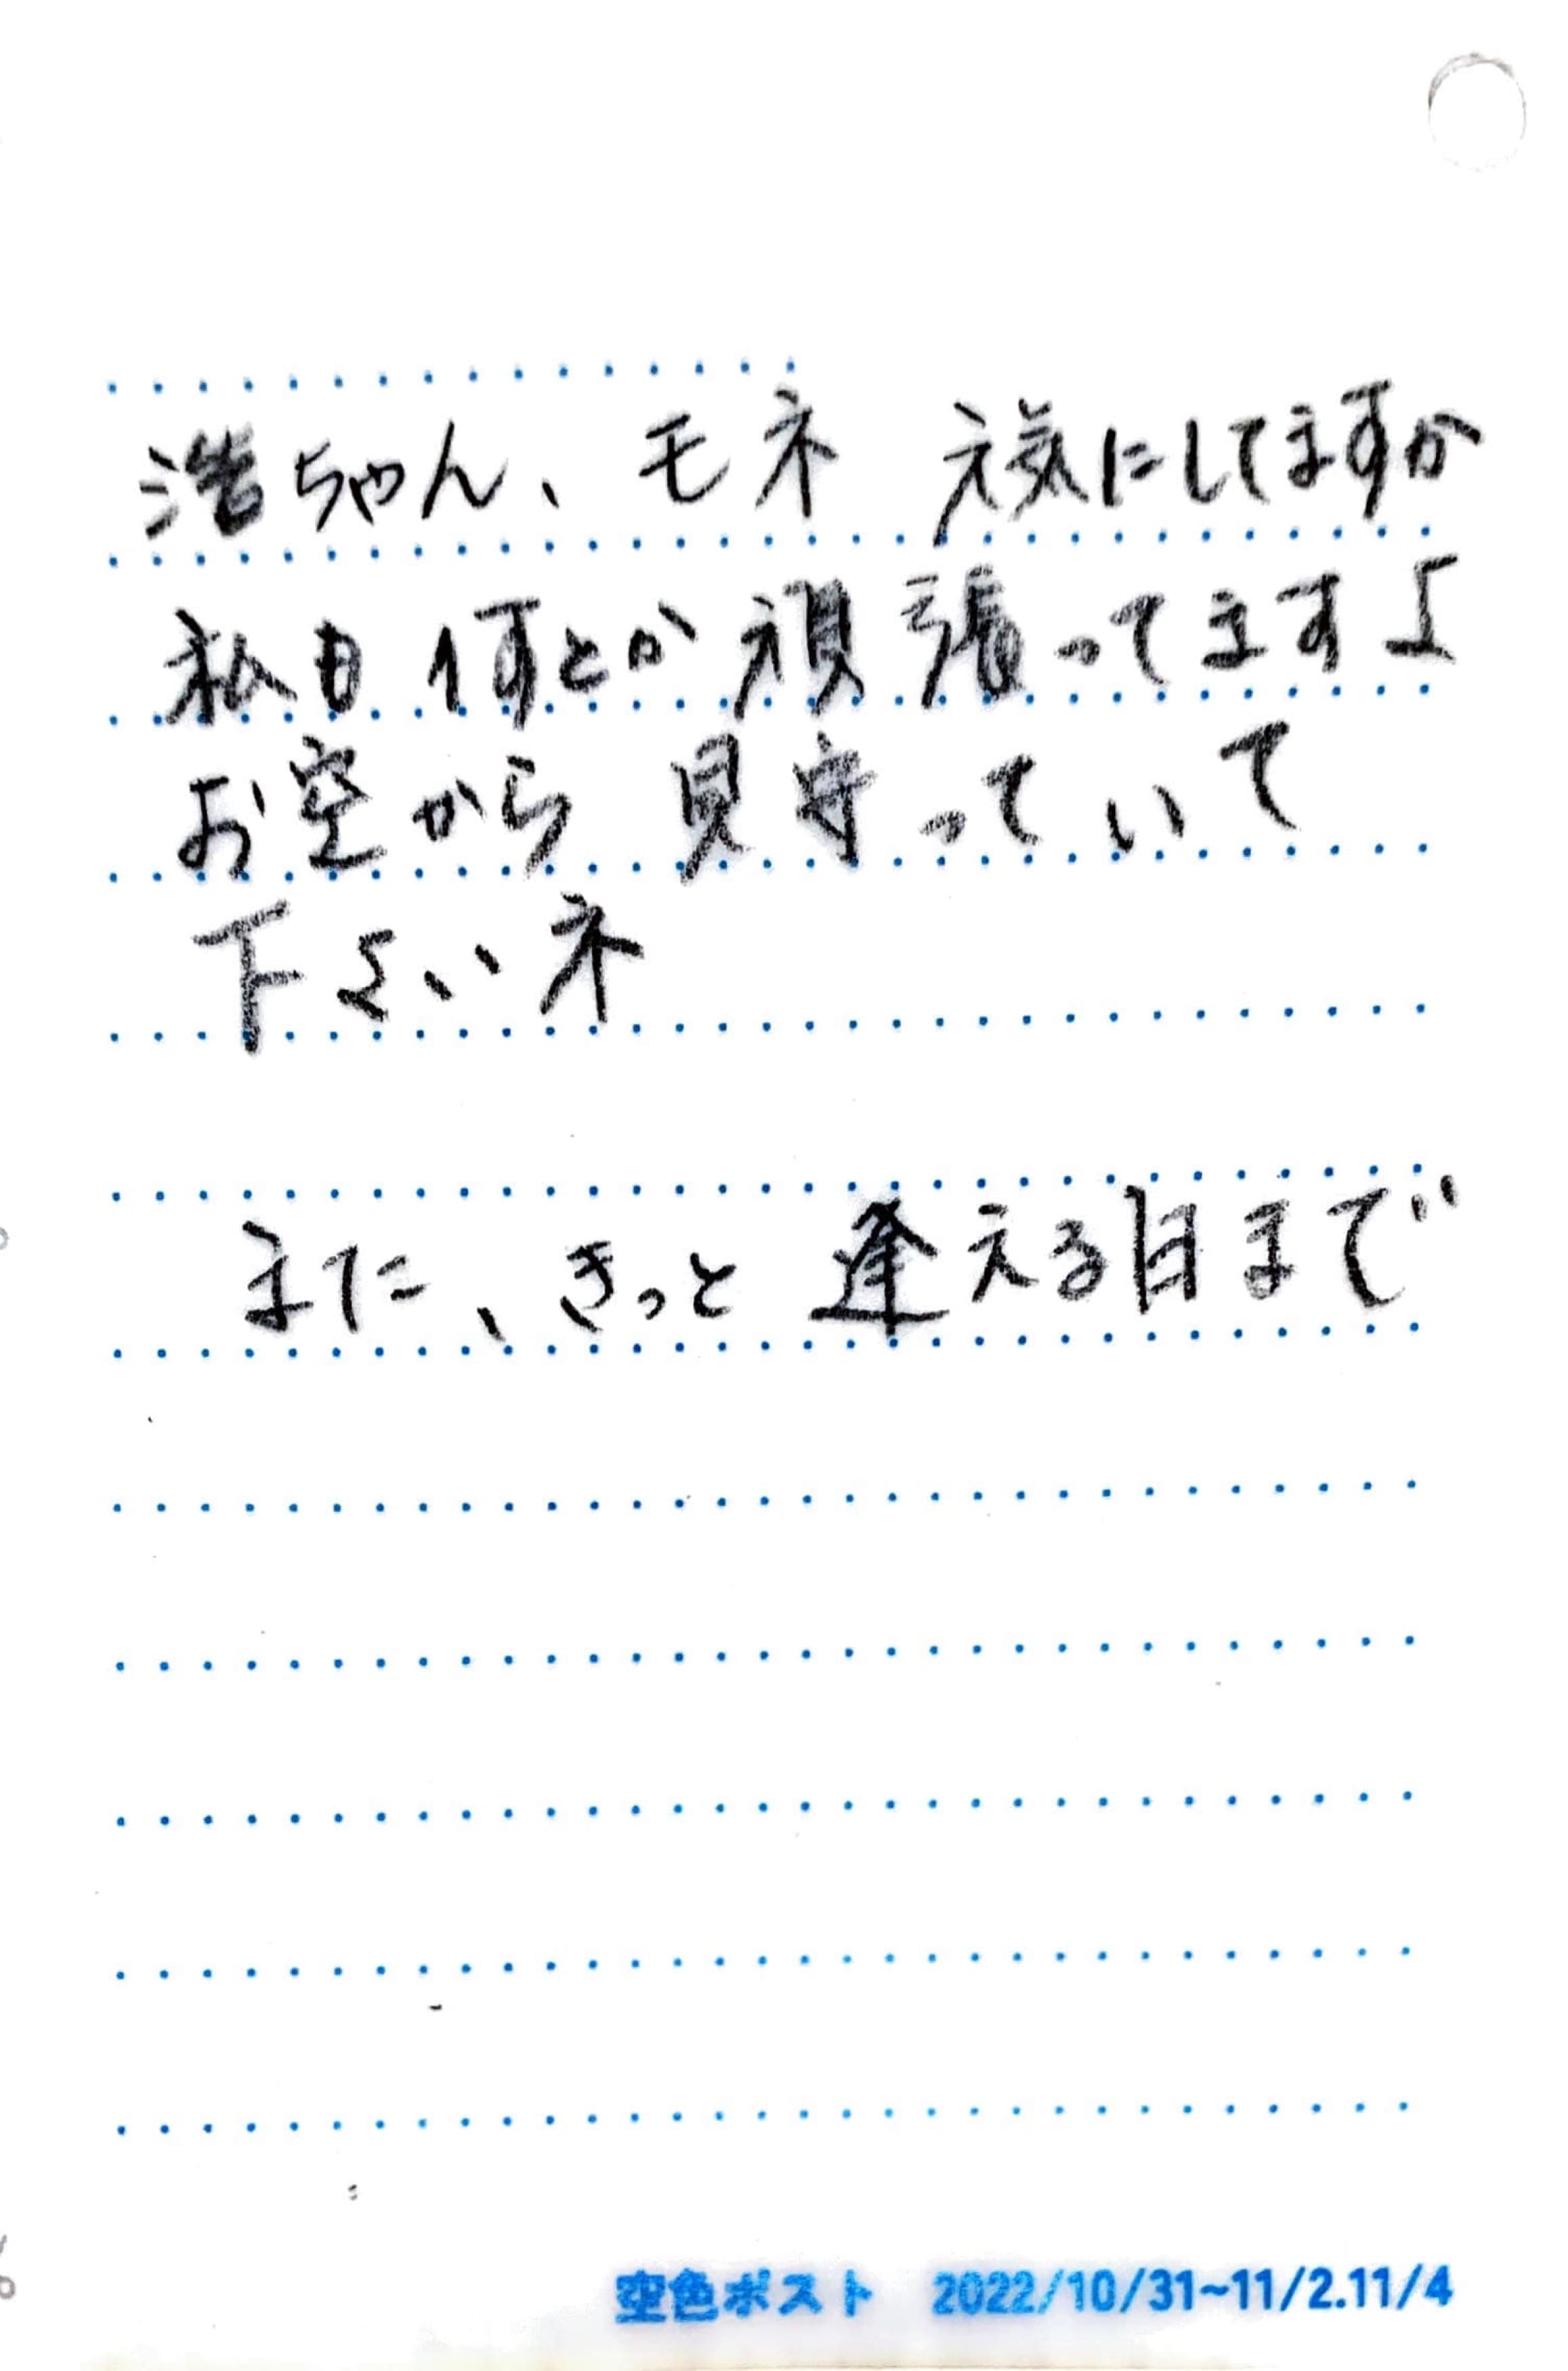 浩ちゃん、モネ 元気にしてますか
私も何とか頑張ってますよ
お空から見守っていて
下さいネ
また、きっと逢える日まで
空色ポスト 2022/10/31~11/2.11/4